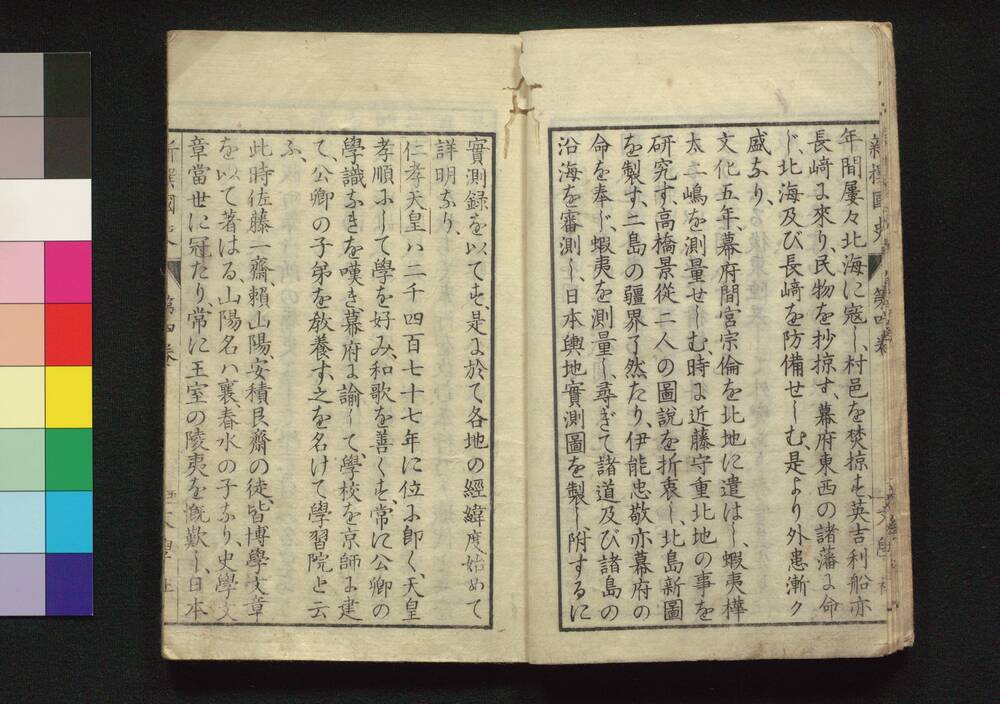 年間屢々北海に寇し、村邑を焚掠す、英吉利船亦
長﨑に來り、民物を抄掠す、幕府東西の諸藩に命
じ、北海及び長﨑を防備せしむ、是より外患漸ク
盛なり、
文化五年、幕府間宮宗倫を北地に遣はし、蝦夷樺
太二嶋を測量せしむ、時に近藤守重北地の事を
研究す、高橋景從二人の圖說を折衷し、北島新圖
を製す、二島の疆界了然たり、伊能忠敬亦幕府の
命を奉じ、蝦夷を測量し、尋ぎて諸道及び諸島の
沿海を審測し、日本輿地實測圖を製し、附するに
實測録を以てす、是に於て各地の經緯度始めて
詳明なり、
仁孝天皇ハ二千四百七十七年に位に卽く、天皇
孝順にして學を好み、和歌を善くす、常に公卿の
學識なきを嘆き、幕府に諭して、學校を京師に建
て、公卿の子弟を敎養す、之を名けて學習院と云
ふ、
此時佐藤一齋、賴山陽、安積艮齋の徒、皆博學文章
を以て著はる、山陽名ハ襄、春水の子なり、史學文
章當世に冠たり、常に王室の陵夷を慨歎し、日本
新撰國史
第四卷